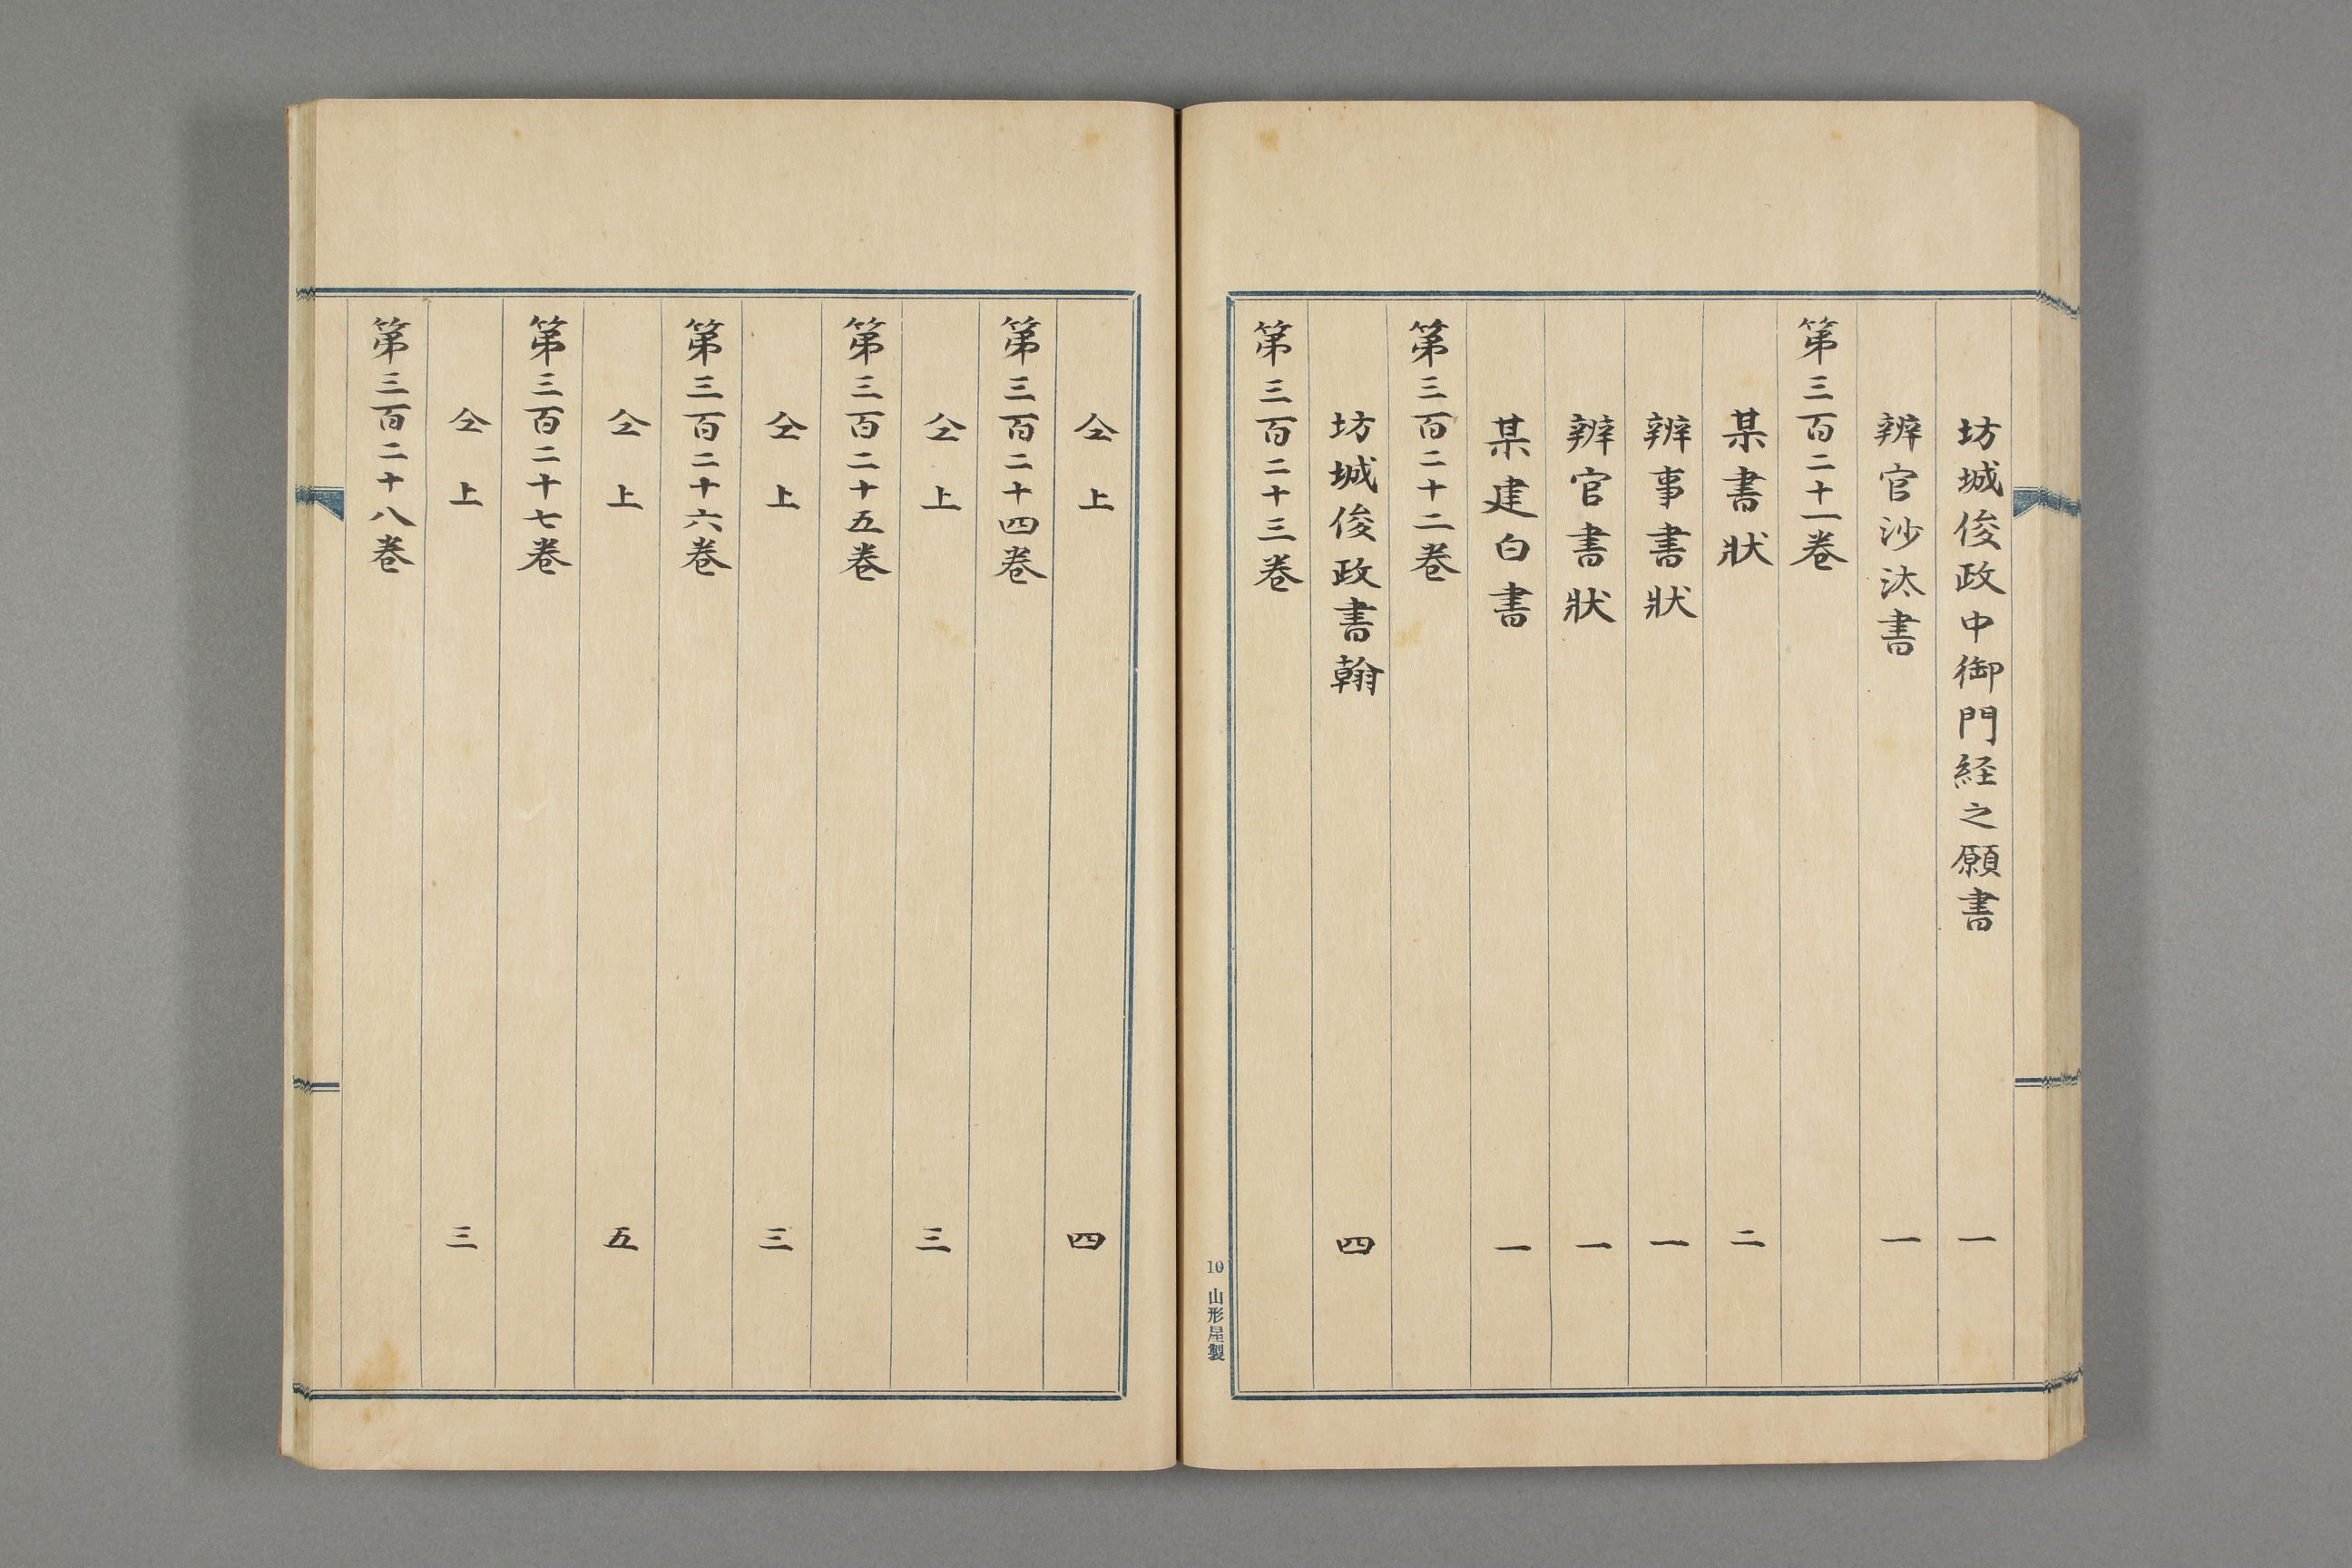 坊城俊政中御門経之願書　一
辨官沙汰書　一
第三百二十一巻
某書狀　二
辨事書狀　一
辨官書狀　一
某建白書　一
第三百二十二巻
坊城俊政書翰　四
第三百二十三巻
10 山形屋製
仝上　四
第三百二十四巻
仝上　三
第三百二十五巻
仝上　三
第三百二十六巻
仝上　五
第三百二十七巻
仝上　三
第三百二十八巻